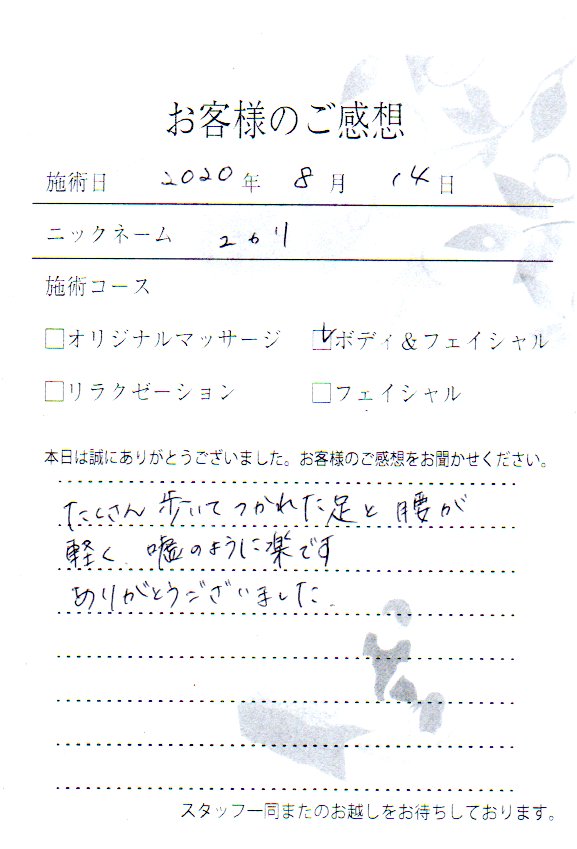 お客様のご感想
施術日 2020年 8月 14日
ニックネーム
施術コース
□オリジナルマッサージ ☑ボディ&フェイシャル
□リラクゼーション □フェイシャル
本日は誠にありがとうございました。お客様のご感想をお聞かせください。
たくさん 歩いて つかれた足と 腰が
軽く 嘘のように楽です
ありがとうございました
スタッフ一同またのお越しをお待ちしております。